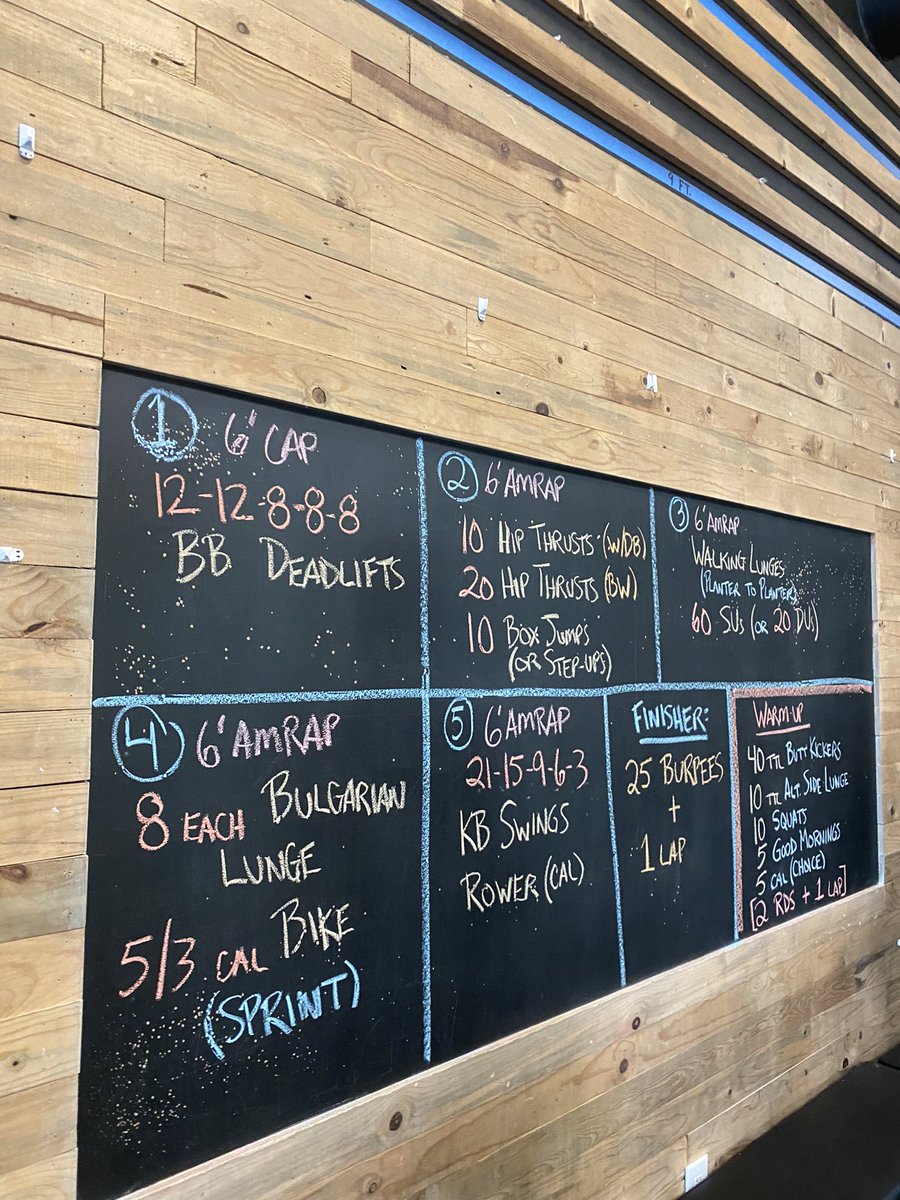 9 FT.
1 6' CAP
12-12-8-8-8
BB DEADLIFTS
2 6' AMRAP
10 HIP THRUSTS (W/DB)
20 HIP THRUSTS (BW)
10 BOX JUMPS
(OR STEP-UPS)
3 6' AMRAP
WALKING LUNGES
(PLANTER TO PLANTER)
60 SUs (OR 20 DUs)
4 6' AMRAP
8 EACH BULGARIAN
LUNGE
5/3 CAL BIKE
(SPRINT)
5 6' AMRAP
21-15-9-6-3
KB SWINGS
ROWER (CAL)
FINISHER:
25 BURPEES
+
1 LAP
WARM-UP
40 TTL BUTT KICKERS
10 TTL ALT. SIDE LUNGE
10 SQUATS
5 GOOD MORNINGS
5 CAL (CHOICE)
[2 RDS + 1 LAP]